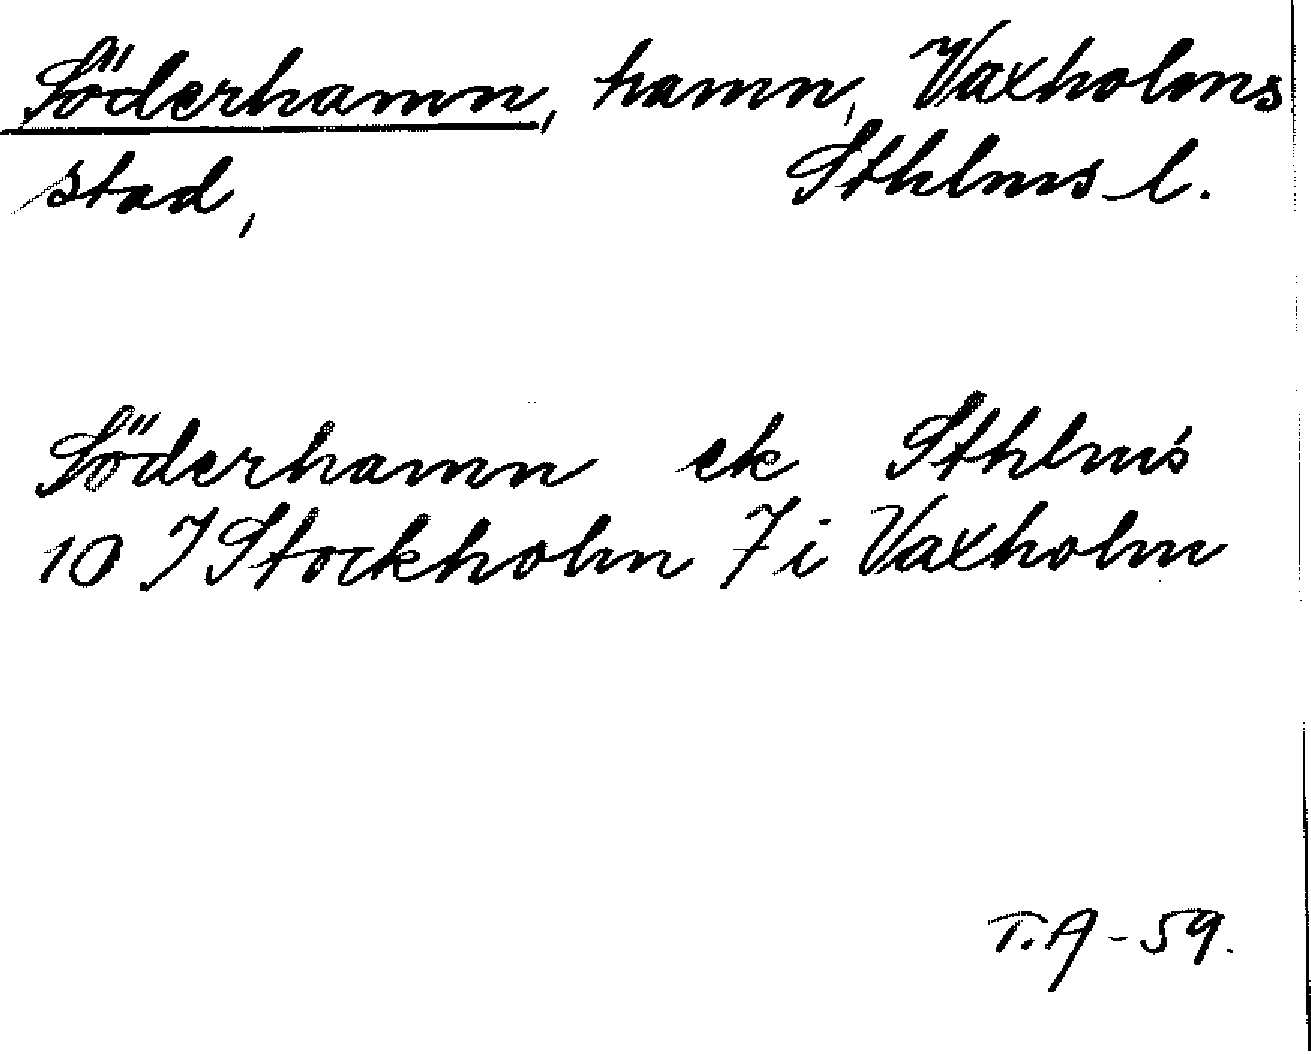 Söderhamn, hamn, Vaxholms
stad, Sthlms l.
Söderhamn ek Sthlms
10 I Stockholm 7 i Vaxholm
T.A-59.